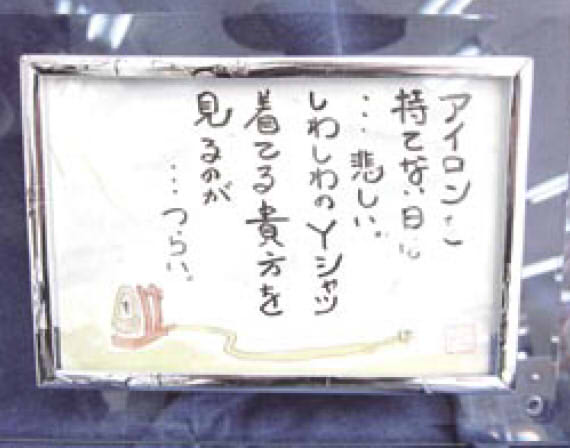 アイロンも
持てない日に
…悲しい。
しわしわのYシャツ
着てる貴方を
見るのが
…つらい。